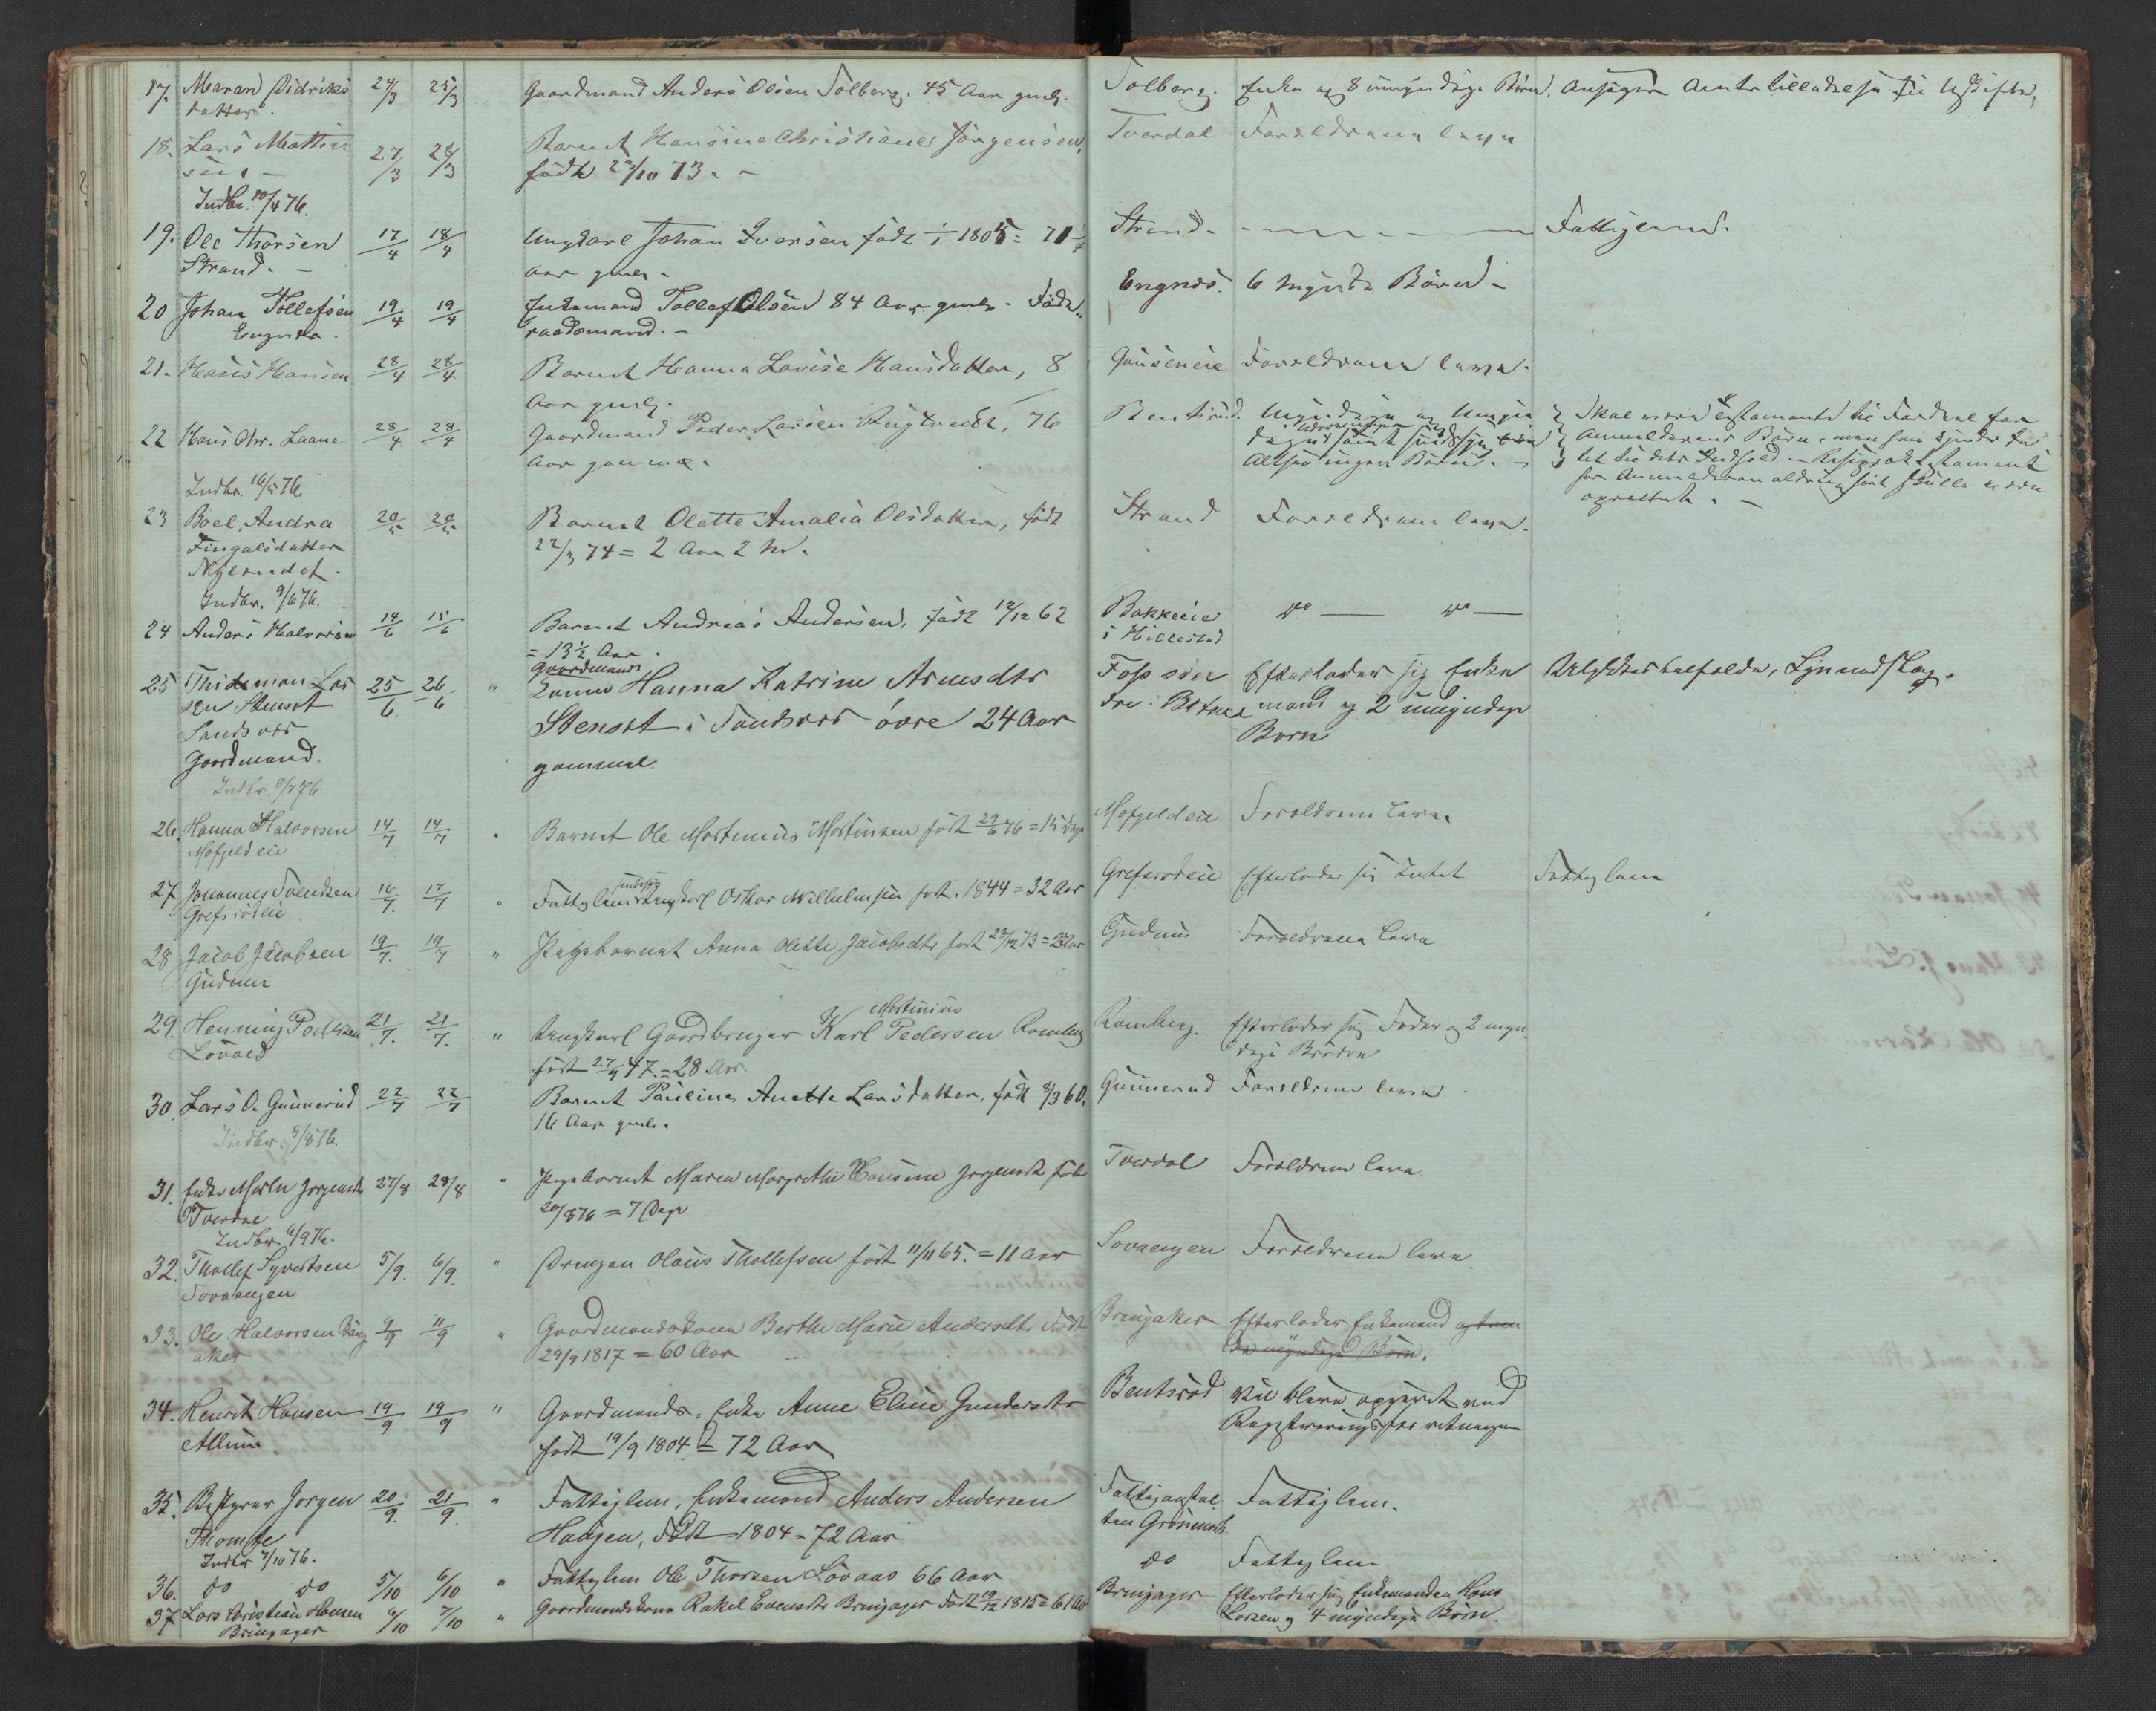 17. Maren Didriks 24/3 25/3 Gaardmand Anders Olsen Solberg. 45 Aar gml. Solberg. Enke og 8 umyndige Børn. Ansøger Amts tilladelse til
datter.
18. Lars Mattin 27/3 28/3 Barnet Hansine Christiane Jørgensen, Tverdal Forældrene leve
sen. - født 23/10 73. -
Indbr. 10/4 76.
19. Ole Thorsen 17/4 18/4 Ungkarl Johan Iversen født 1/1 1805 = 71 1/4 Strand. - Fattiglem.
Strand. - Aar gml. -
20 Johan Tollefsen 19/4 19/4 Enkemand Tollef Olsen 84 Aar gml. Føde Engnes. 6 myndige Børn -
Engnes. raadsmand. -
21. Hans Hansen 28/4 28/4 Barnet Hanna Lovise Hansdatter, 8 Gauseneie Forældrene leve.
Aar gml.
22 Hans Chr. Laane 28/4 28/4 Gaardmand Peder Larsen 76 Myndige og Umyn Skal være Testamente til Fordeel for
Aar gammel. dige samt Anmelderens Børn, men han kjender
Altsaa ingen Børn. - til dets Indhold. -
for Anmelderen aldrig skulle være
oprettet. -
Indbr. 16/5 76.
23 Boel Andrea 20/5 20/5 Barnet Olette Amalia Olsdatter, født Strand Forældrene leve.
Fingalsdatter 22/3 74 = 2 Aar 2 M.
Myerudet.
Indbr. 9/6 76.
24 Anders Halvorsen 14/6 15/6 Barnet Andreas Andersen, født 12/12 62 Bakkeeie do — do —
= 13½ Aar. i Hillestad
25 Thideman Lar 25/6 26/6 " Gaardmands Kone Hanna Katrine Arnesdtr Efterlader sig Enke
sen Stenset Stenset i Sandsver øvre 24 Aar mand og 2 umyndige
Sandsver gammel. Børn
Gaardmand.
Indbr. 8/7 76
26. Hanna Halvorsen 14/7 14/7 " Barnet Ole Martinius Martinsen født 29/6 76 = 15 Dage Mofjeldeie Forældrene leve
Mofjeldeie
27 Johannes Svendsen 16/7. 17/7 " Fattiglem sindssyg Ungkarl Oskar Wilhelmsen født. 1844 = 32 Aar Grefsrødeie Efterlader sig Intet Fattiglem
Grefsrødeie
28 Jacob Jacobsen 19/7. 19/7 " Pigebarnet Anna Olette Jacobsdtr født 28/12 73 = Gudum Forældrene leve
Gudum
29. Henning Pedersen 21/7. 21/7. " Ungkarl Gaardbruger Karl Martinius Pedersen Ramberg Ramberg. Efterlader sig Fader og 2 myn
Lövald født 27/9 47. = 28 Aar. dige Brødre
30. Lars O. Gunnerud 22/7 22/7 Barnet Pauline Anette Larsdatter, født 8/3 60. Gunnerud Forældrene leve
16 Aar gml.
Indbr. 5/8 76.
31. Enke Jørgensdtr 27/8 28/8 " Pigebarnet Maren Margrethe Hansine Jørgensdtr født Tverdal Forældrene leve
Tverdal 20/8 76 = 7 Dage
Indbr. 6/9 76.
32. Thollef Syvertsen 5/9. 6/9. " Drengen Olaus Thollefsen født 11/11 65. = 11 Aar Sovaengen Forældrene leve.
Sovaengen
33. Ole Halvorsen Bring 9/9 11/9 " Gaardmandskone Berthe Marie Andersdtr Født Bringaker Efterlader Enkemand og
aker 29/9 1817 = 60 Aar myndige Børn.
34. Henrik Hansen 19/9 19/9 " Gaardmands-Enke Anne Eline Gundersdtr Bentsrød Vil blive opgivet ved
Allum født 19/9 1804. = 72 Aar Registreringsforretningen
35. Bestyrer Jørgen 20/9. 21/9. " Fattiglem, Enkemand Anders Andersen Fattiganstal Fattiglem.
Thomle Haugen, Født 1804 = 72 Aar ten
Indbr 7/10 76.
36. do do 5/10 6/10 " Fattiglem Ole Thorsen Lövaas 66 Aar do Fattiglem
37 Lars Christian Hansen 6/10 7/10 " Gaardmandskone Rakel Evensdtr Bringager Født 19/12 1815 = 61 Aar Bringager Efterlader sig Enkemanden Hans
Bringager Larsen og 4 myndige Børn.